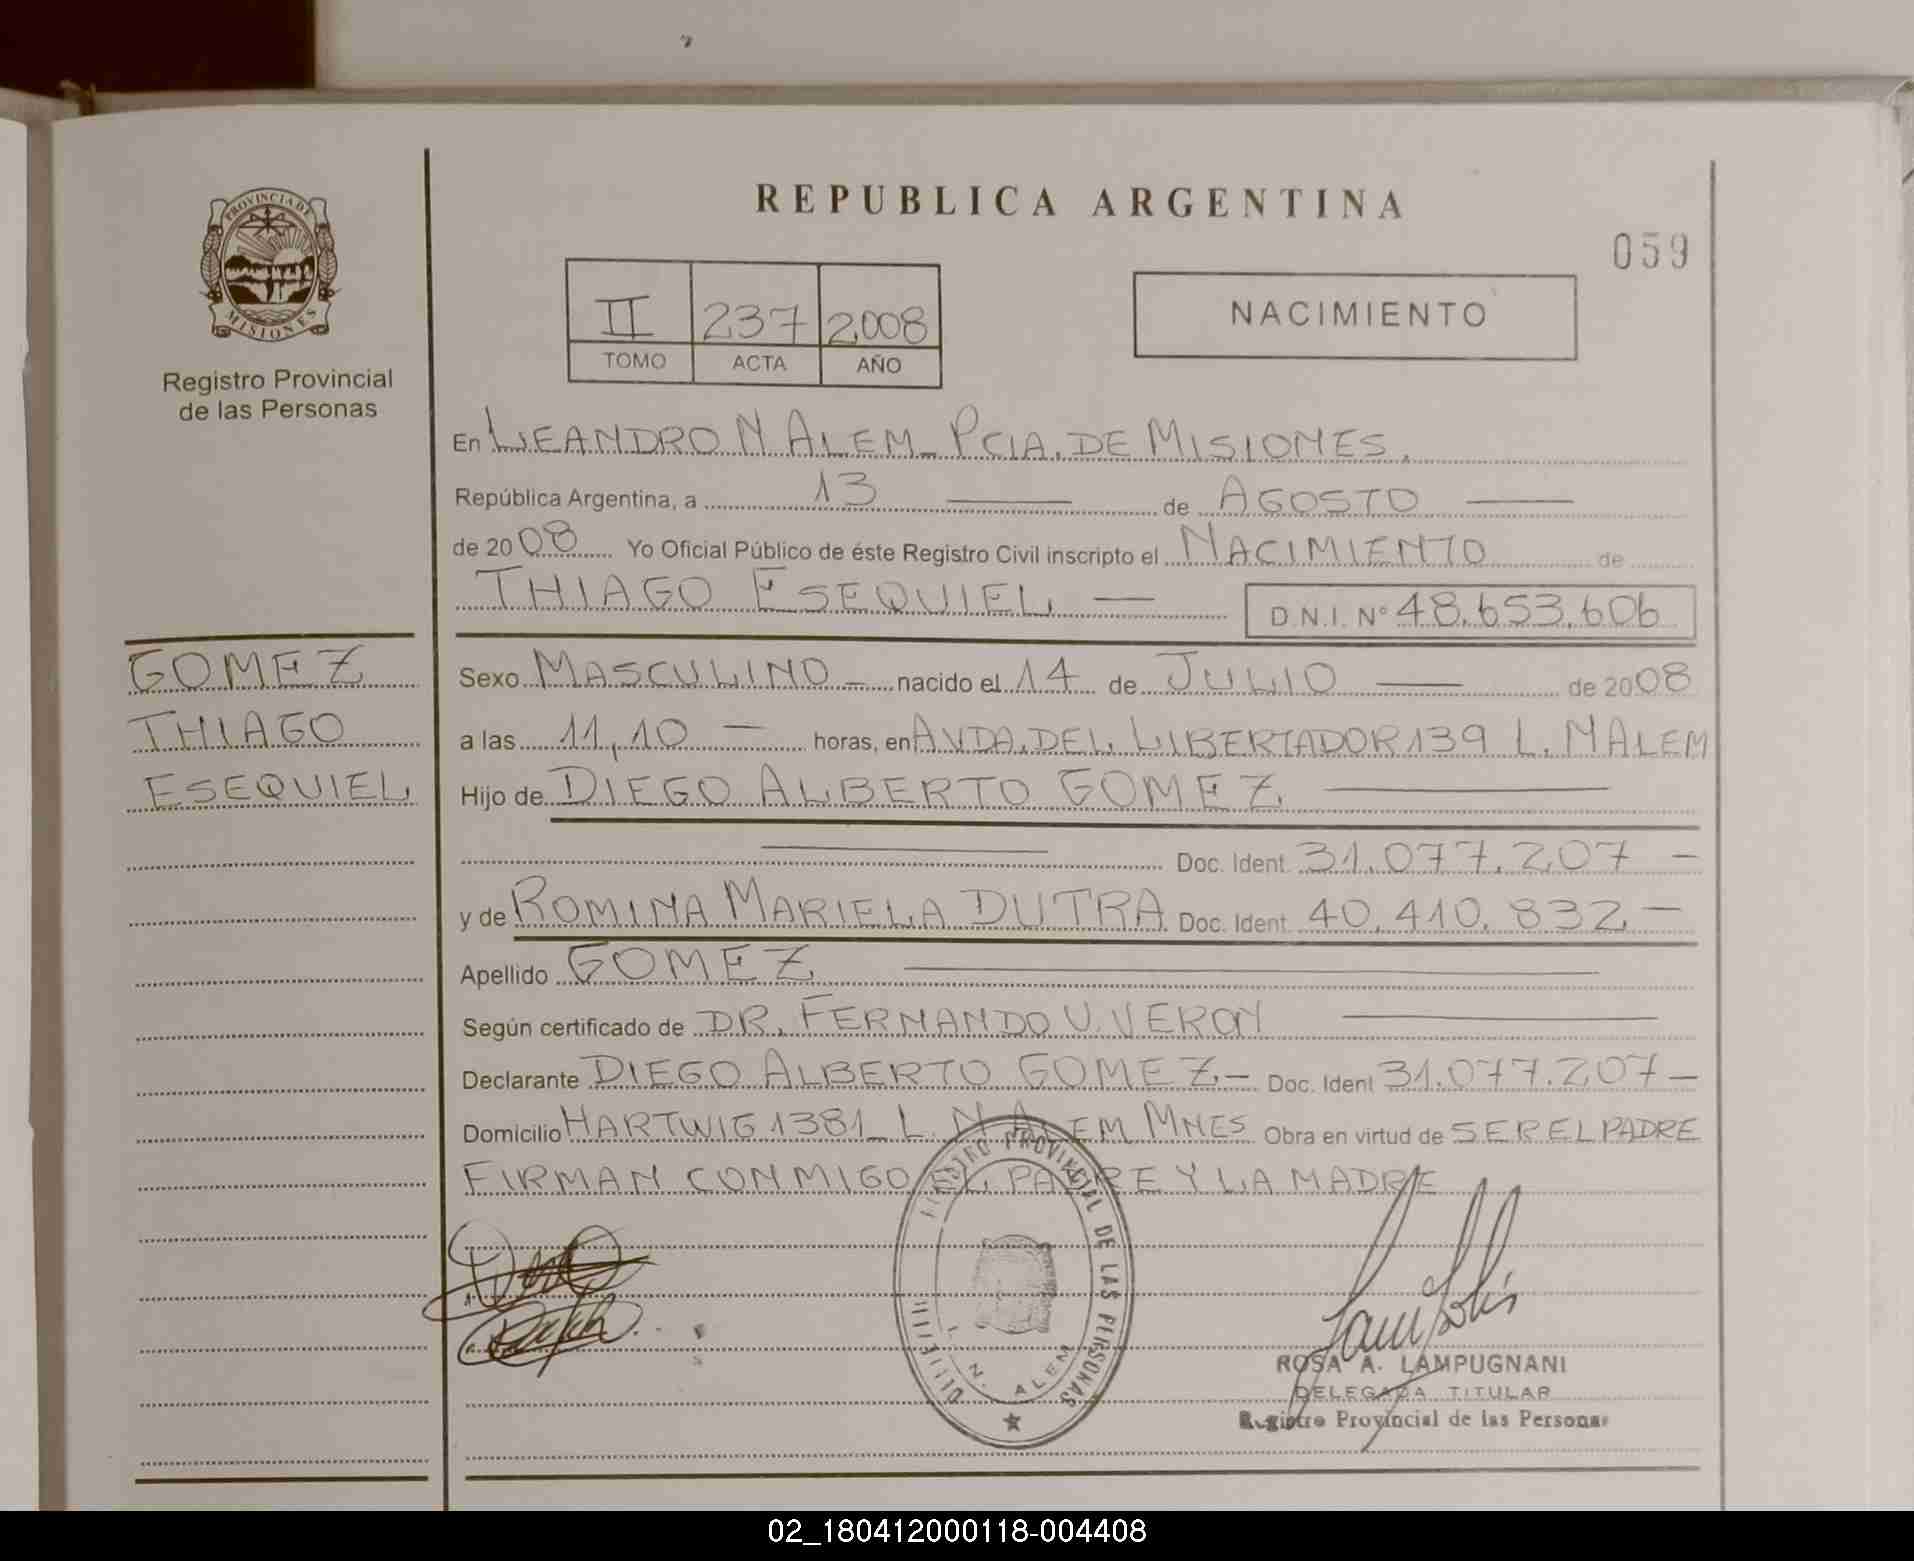 REPUBLICA ARGENTINA
059
PROVINCIA DE
MISIONES
Registro Provincial
de las Personas
II 237 2008
TOMO ACTA AÑO
NACIMIENTO
En LEANDRO N ALEM_ PCIA. DE MISIONES.
República Argentina, a 13 — de AGOSTO —
de 2008 Yo Oficial Público de éste Registro Civil inscripto el NACIMIENTO de
THIAGO ESEQUIEL — D.N.I. Nº 48.653.606
GOMEZ
THIAGO
ESEQUIEL
Sexo MASCULINO — nacido el 14 de JULIO — de 2008
a las 11,10 — horas, en AVDA. DEL LIBERTADOR 139 L. N ALEM
Hijo de DIEGO ALBERTO GOMEZ —
— Doc. Ident. 31.077.207 —
y de ROMINA MARIELA DUTRA. Doc. Ident. 40.410.832 —
Apellido GOMEZ —
Según certificado de DR. FERNANDO V. VERON —
Declarante DIEGO ALBERTO GOMEZ — Doc. Ident 31.077.207 —
Domicilio HARTWIG 1381_ L. N ALEM MNES Obra en virtud de SER EL PADRE
FIRMAN CONMIGO EL PADRE Y LA MADRE
REGISTRO PROVINCIAL DE LAS PERSONAS
L. N. ALEM
ROSA A. LAMPUGNANI
DELEGADA TITULAR
Registro Provincial de las Personas
02_180412000118-004408